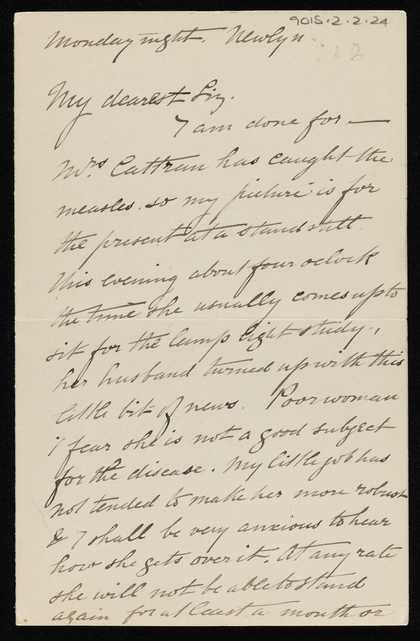 9015.2.2.24
Monday night. Newlyn
My dearest Liz.
I am done for —
Mrs Cattran has caught the
measles. so my picture is for
the present at a stand still.
This evening about four oclock
the time she usually comes up to
sit for the lamp light study.,
her husband turned up with this
little bit of news. Poor woman
I fear she is not a good subject
for the disease. My little job has
not tended to make her more robust
& I shall be very anxious to hear
how she gets over it. At any rate
she will not be able to stand
again for at least a month or